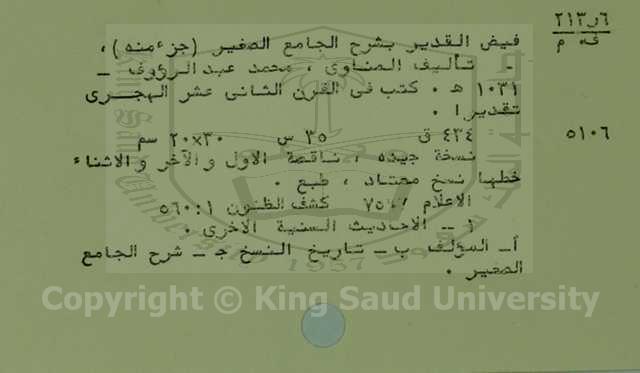 ٢١٣ر٦
ف٠م
فيض القدير بشرح الجامع الصغير (جزءمنه) ،
تأليف المناوى ، محمد عبدالرؤوف ـ
١٠٣١ هـ ٠ كتب فى القرن الثانى عشر الهجرى
تقديرا ٠
٥١٠٦
٤٣٤ ق ٣٥ س ٣٠×٢٠ سم
نسخة جيده ، ناقصة الاول والآخر والاثناء
خطها نسخ معتاد ، طبع ٠
الاعلام ٧٥ كشف الظنون ١ : ٥٦٠
١ ــ الاحاديث السنية الاخرى ٠
أـ المؤلف بـ ـ تاريخ النسخ جـ ـ شرح الجامع
الصغير ٠
1957
Copyright © King Saud University